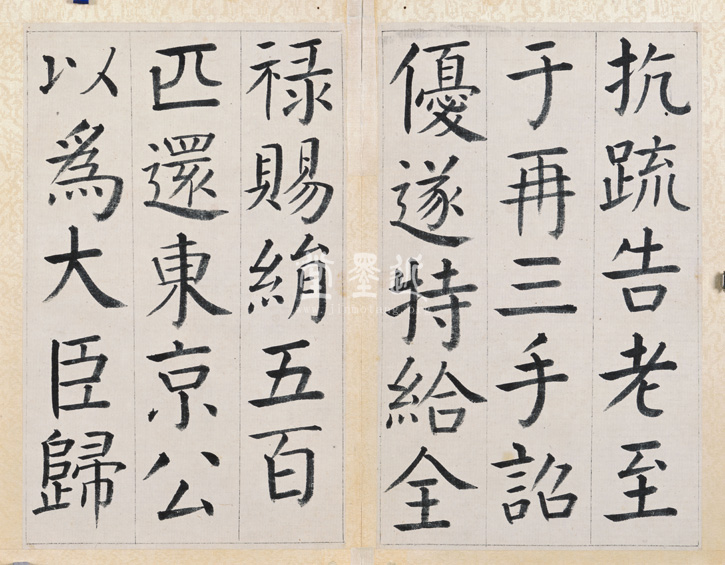 抗疏告老至
于再三手詔
優遂特給全
祿賜絹五百
匹還東京公
以爲大臣歸